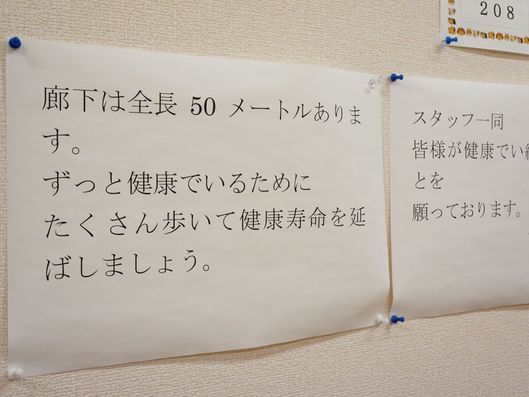 廊下は全長 50 メートルありま
す。
ずっと健康でいるために
たくさん歩いて健康寿命を延
ばしましょう。
スタッフ一同
皆様が健康でい
とを
願っております。
208